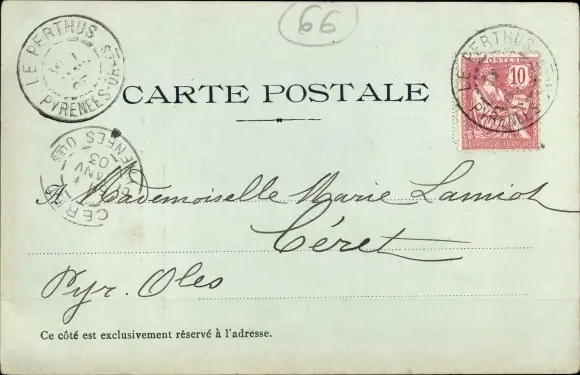 66
LE PERTHUS
PYRENEES-ORles
CARTE POSTALE
POSTES
10
REPUBLIQUE FRANÇAISE
LE PERTHUS
CERET
JANV
03
A Mademoiselle Marie Lamiot
Céret
Pyr. Oles
Ce côté est exclusivement réservé à l'adresse.